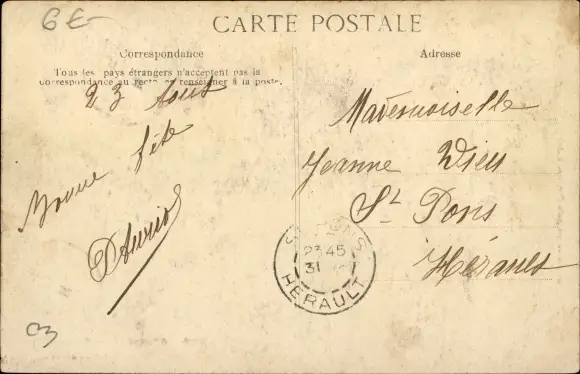 6 €-
CARTE POSTALE
Correspondance
Tous les pays étrangers n'acceptent pas la
correspondance au recto, se renseigner à la poste.
23 Aout
Bonne fête
Adresse
Mademoiselle
Jeanne
St Pons
Hérault
23 45
31
HERAULT